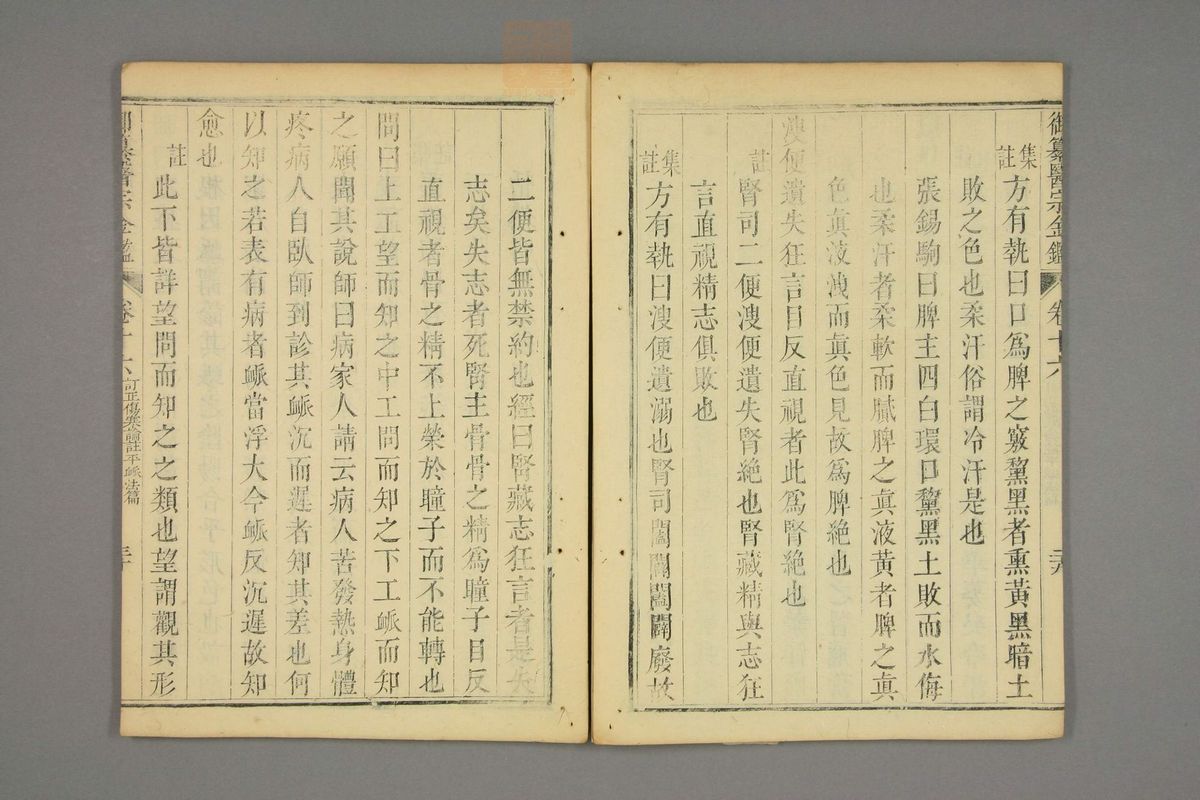 御纂醫宗金鑑 卷十六
集註 方有執曰口爲脾之竅黧黑者熏黃黑暗土
敗之色也柔汗俗謂冷汗是也
張錫駒曰脾主四白環口黧黑土敗而水侮
也柔汗者柔軟而膩脾之眞液黃者脾之眞
色眞液洩而眞色見故爲脾絶也
溲便遺失狂言目反直視者此爲腎絶也
註 腎司二便溲便遺失腎絶也腎藏精與志狂
言直視精志俱敗也
集註 方有執曰溲便遺溺也腎司闔闢闔闢廢故
二便皆無禁約也經曰腎藏志狂言者是失
志矣失志者死腎主骨骨之精爲瞳子目反
直視者骨之精不上榮於瞳子而不能轉也
問曰上工望而知之中工問而知之下工脈而知
之願聞其說師曰病家人請云病人苦發熱身體
疼病人自臥師到診其脈沉而遲者知其差也何
以知之若表有病者脈當浮大今脈反沉遲故知
愈也
註 此下皆詳望問而知之之類也望謂觀其形
御纂醫宗金鑑 卷十六 訂正傷寒論註平脈法篇 三十